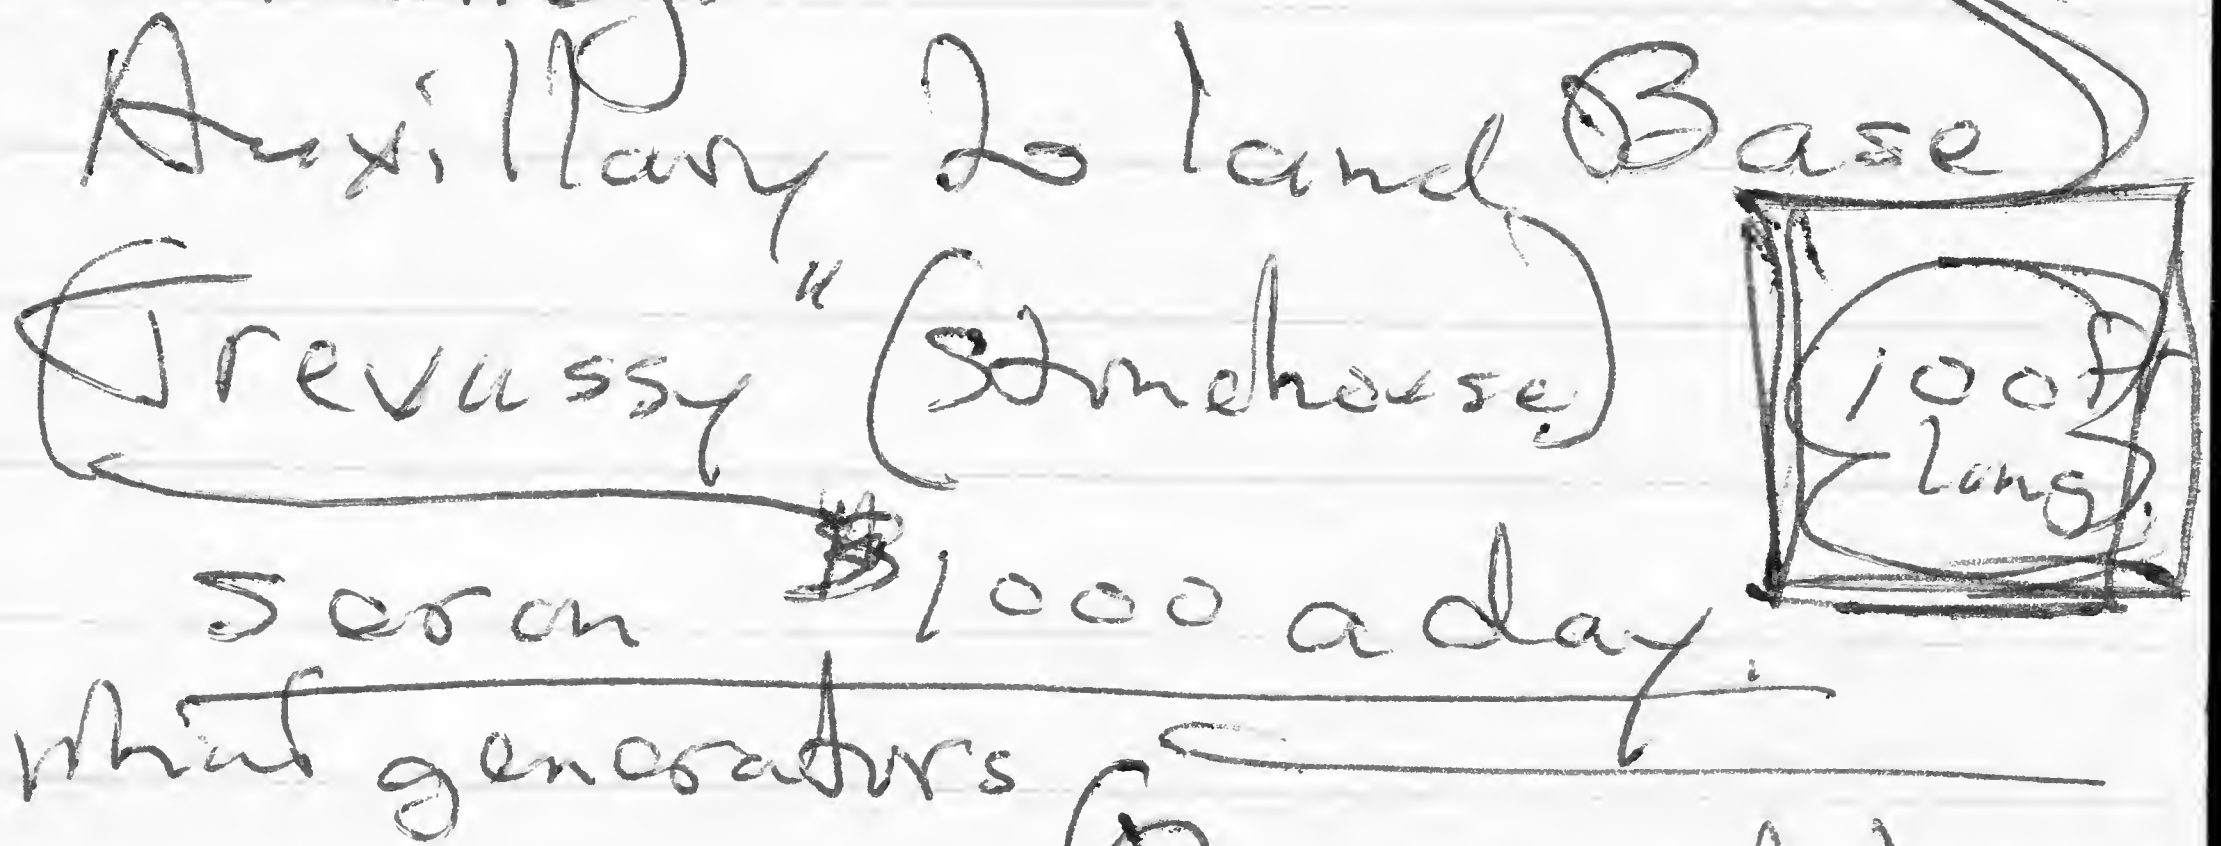 Auxillary to land Base
Trevassy" (Stonehouse)
100ft
long.
$1000 a day.
what generators